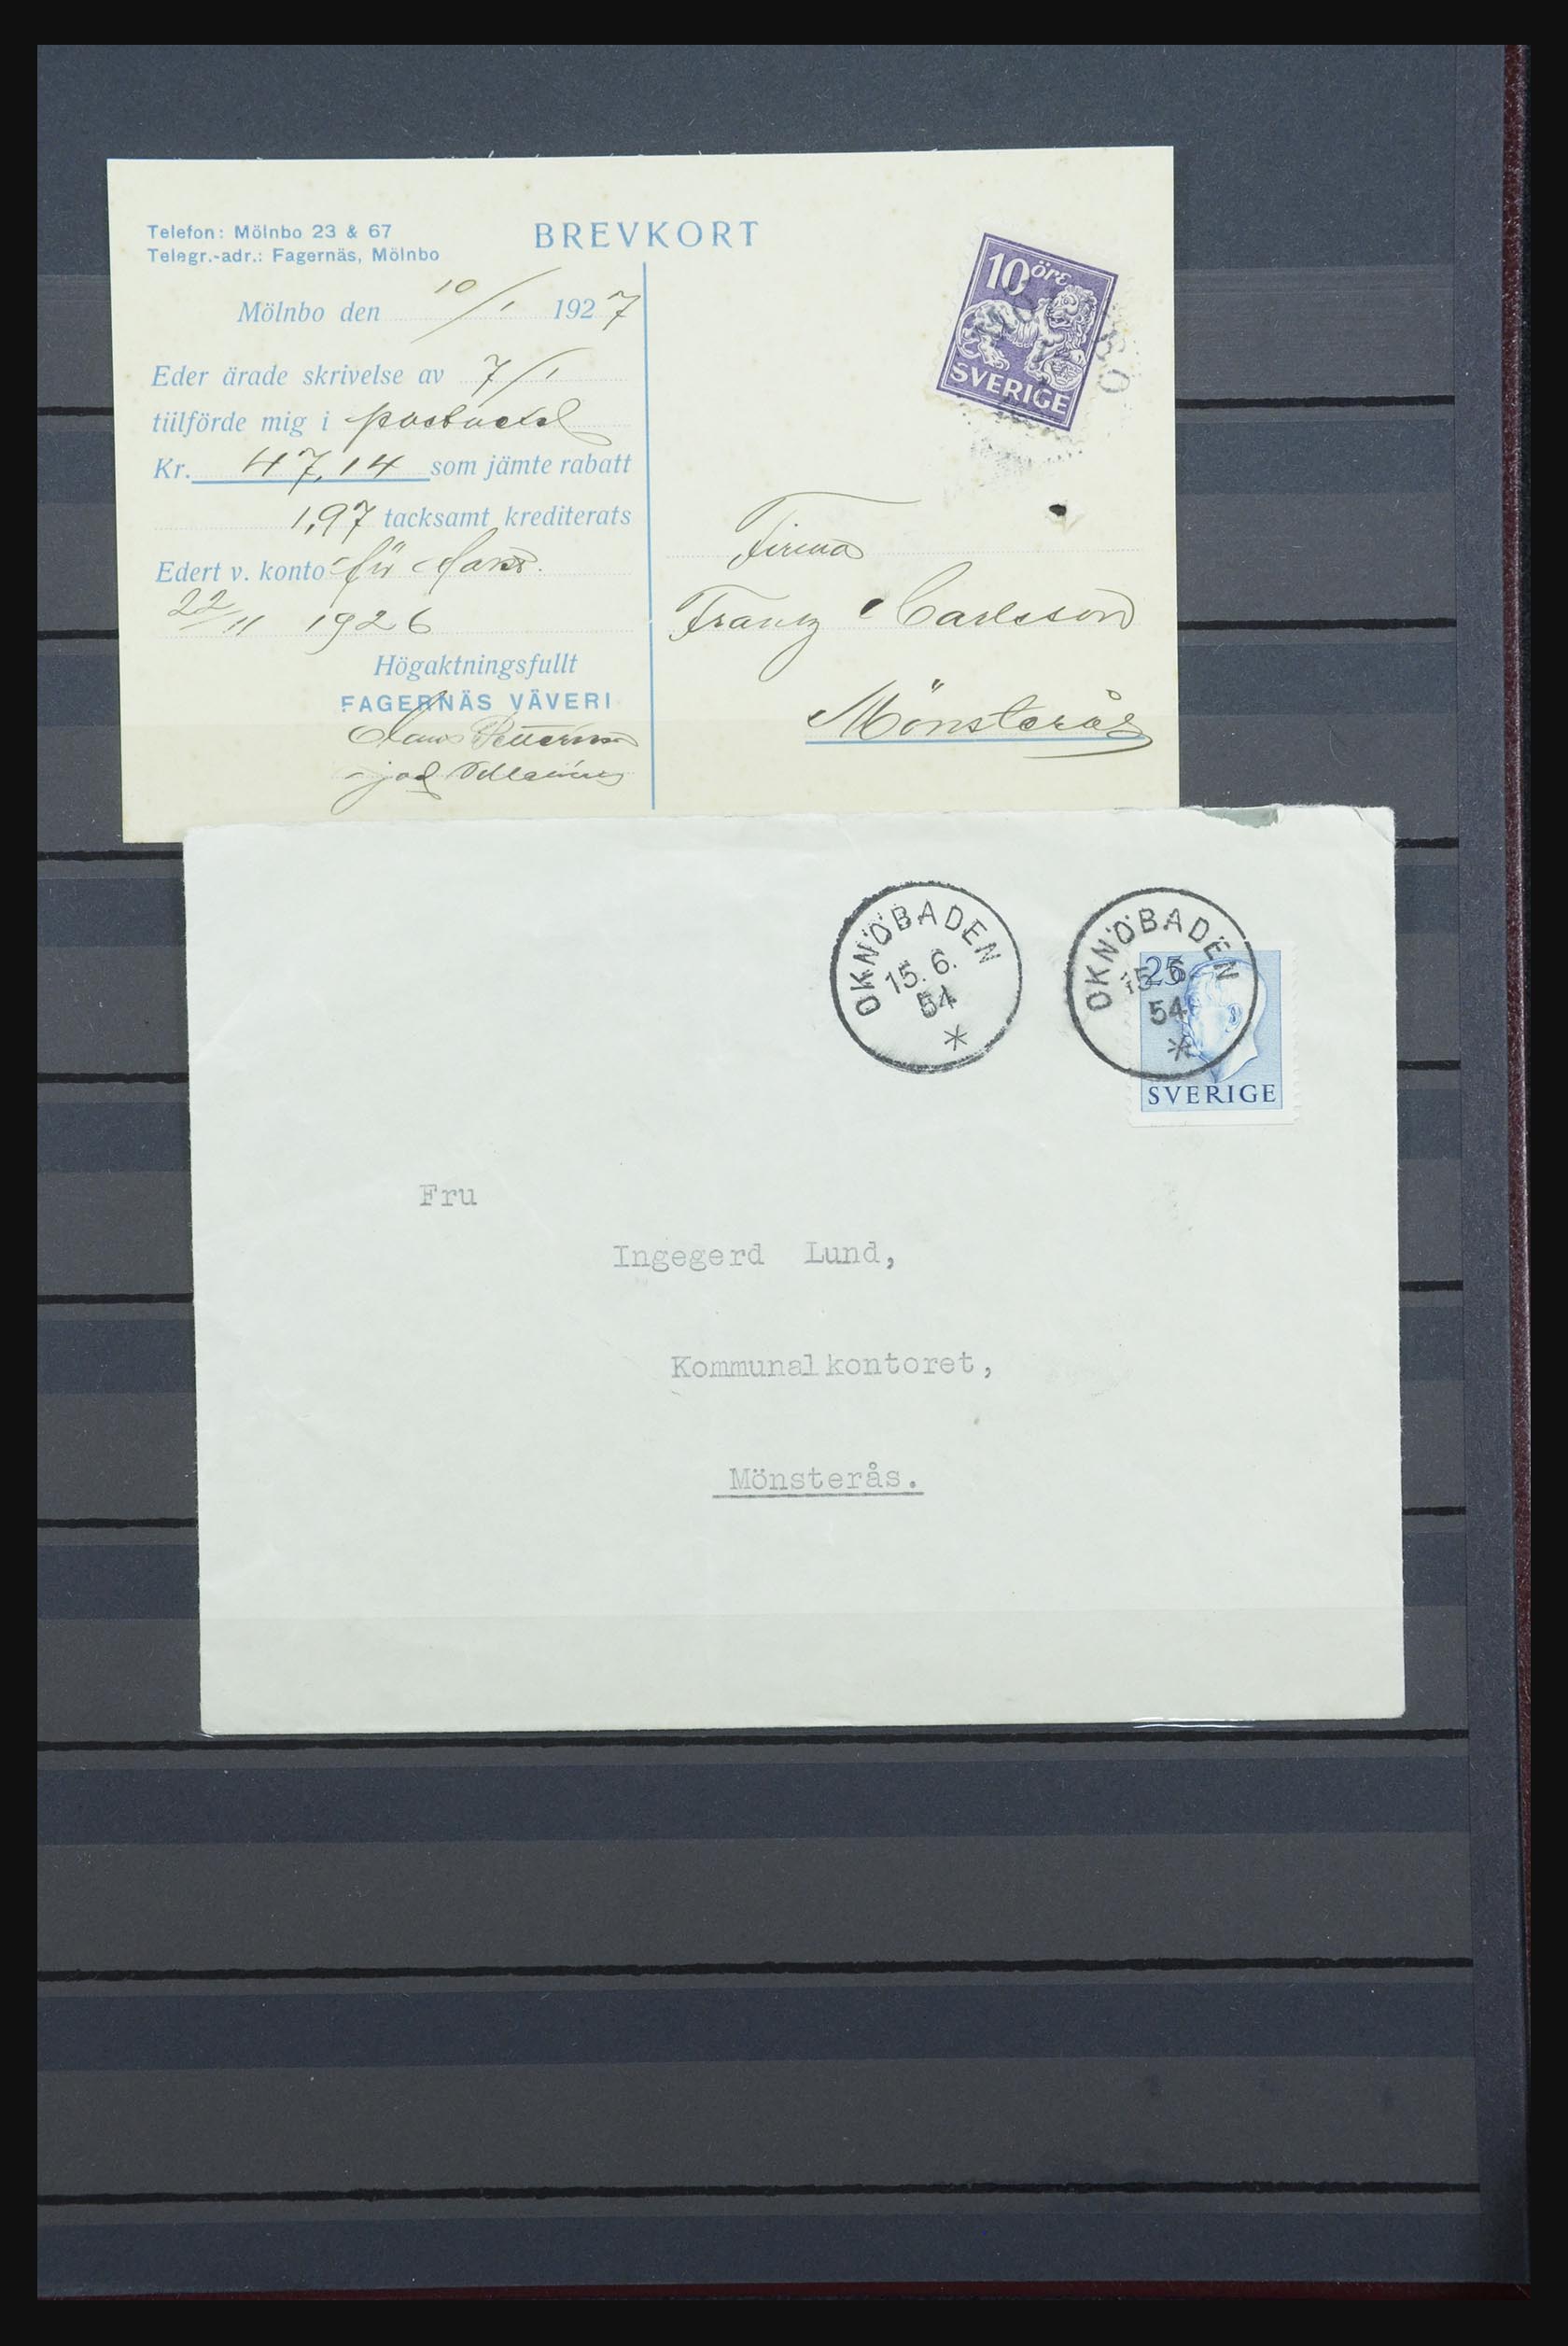 Telefon: Mölnbo 23 & 67
Telegr.-adr.: Fagernäs, Mölnbo
BREVKORT
10 öre
SVERIGE
Mölnbo den 10/1 1927
Eder ärade skrivelse av 7/1
tillförde mig i
Kr. 47,14 som jämte rabatt
1,97 tacksamt krediterats
Edert v. konto för
22/11 1926
Högaktningsfullt
FAGERNÄS VÄVERI
Firma
Frantz Carlsson
Mönsterås
OKNÖBADEN
15. 6.
54
OKNÖBADEN
15. 6.
54
25
SVERIGE
Fru
Ingegerd Lund,
Kommunalkontoret,
Mönsterås.